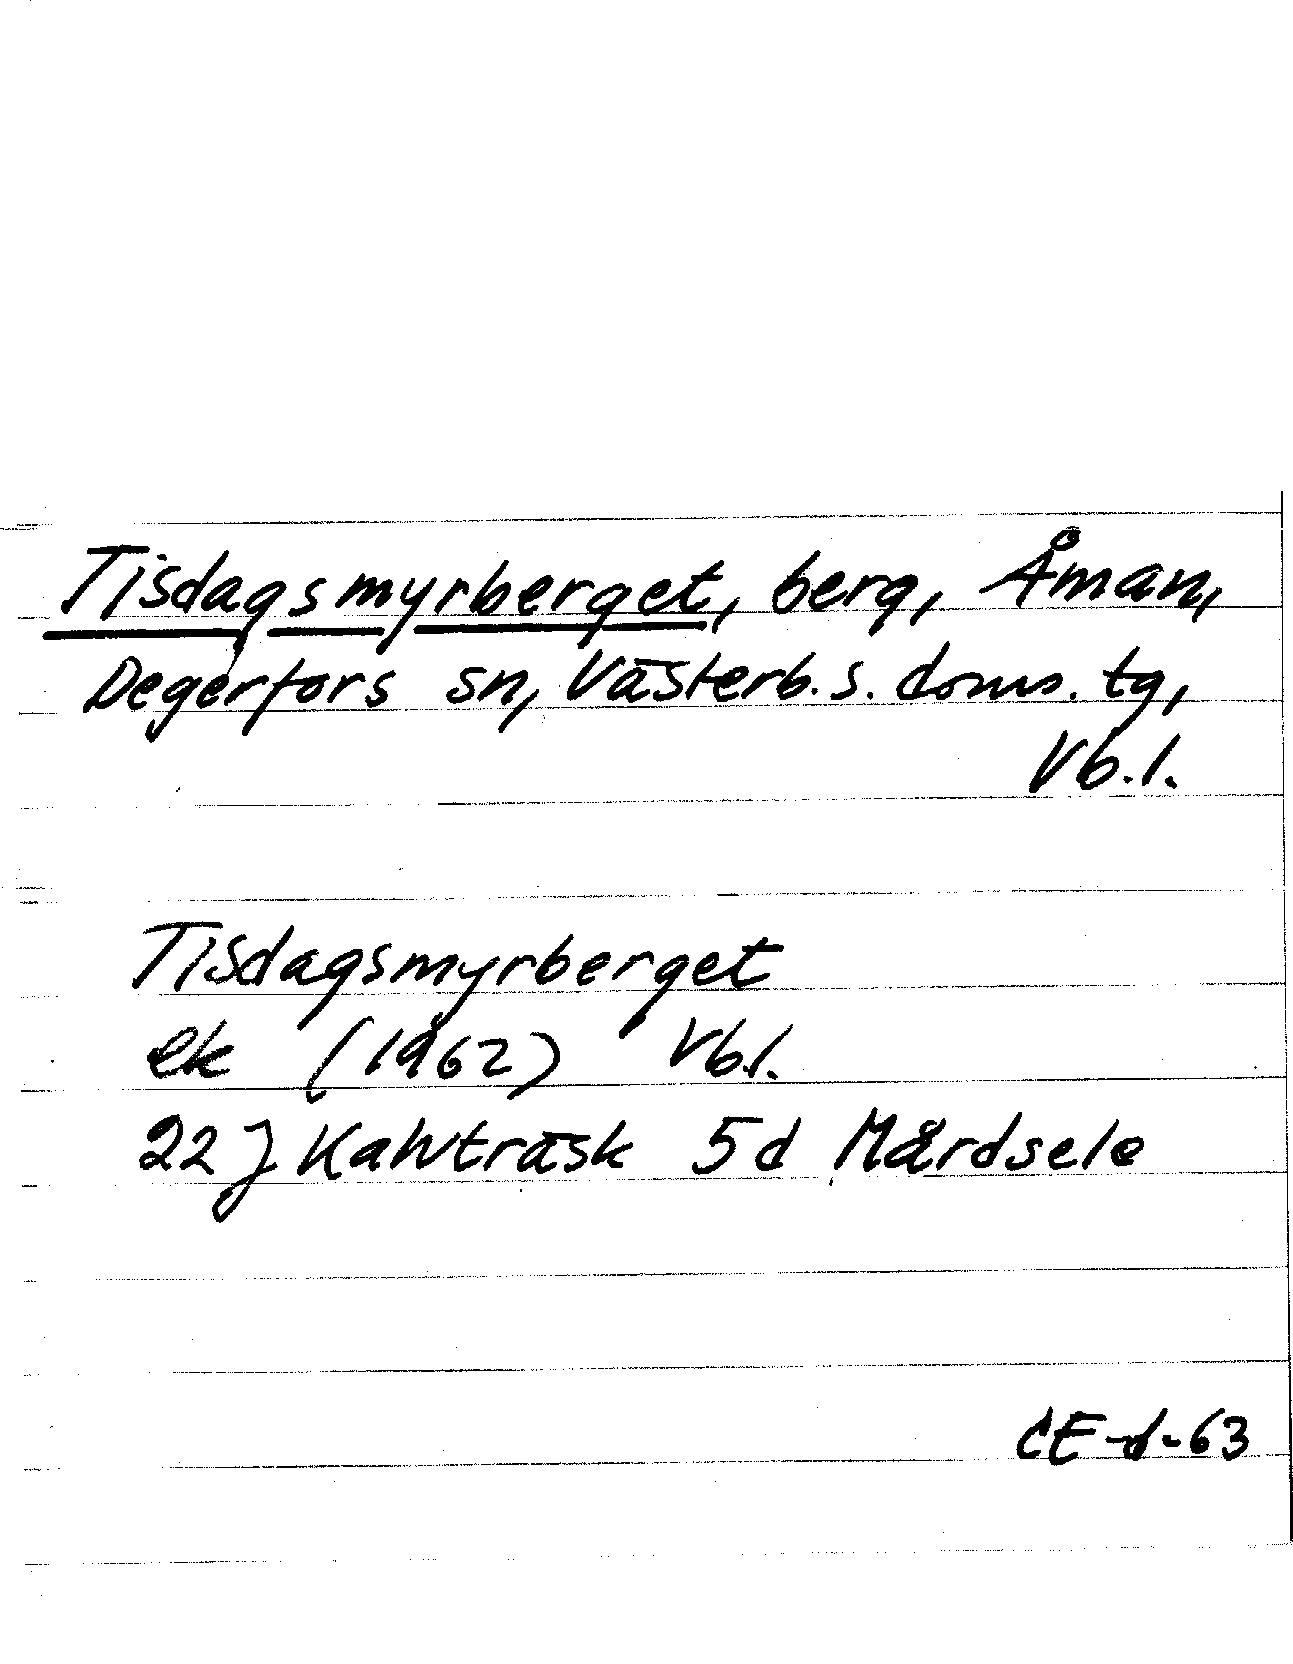 Tisdagsmyrberget, berg, Åman,
Degerfors sn, Västerb. s. doms. tg,
Vb.l.
Tisdagsmyrberget
ek (1962) Vb.l.
22 J Kalvträsk 5d Mårdsele
CE-d-63